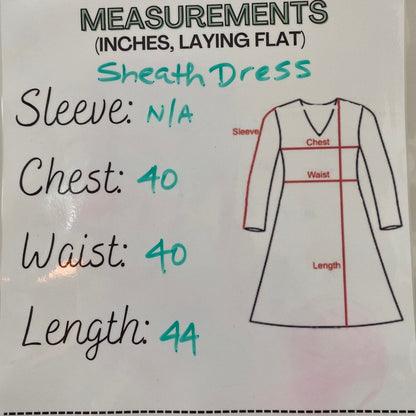 MEASUREMENTS
(INCHES, LAYING FLAT)
Sheath Dress
Sleeve: N/A
Chest: 40
Waist: 40
Length: 44
Sleeve
Chest
Waist
Length